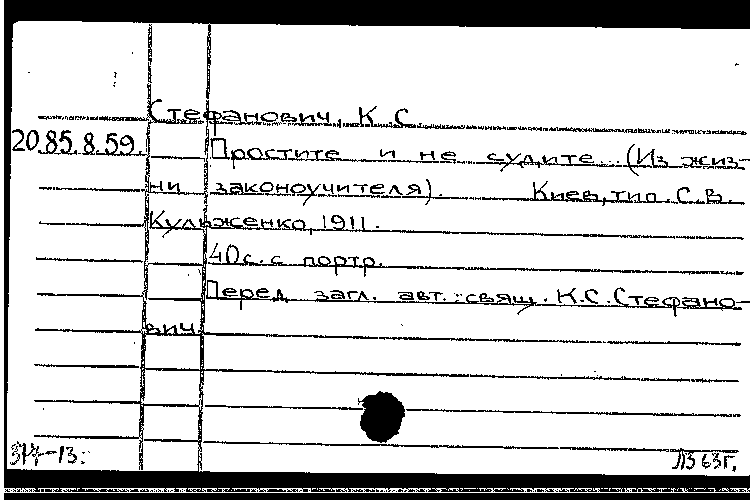 Стефанович, К.С
20.85.8.59. Простите и не судите...(Из жиз-
ни законоучителя). Киев, тип. С.В.
Кульженко, 1911.
40с. с портр.
Перед загл. авт.: свящ. К.С. Стефано-
вич.
317-13. ЛЗ 63г.